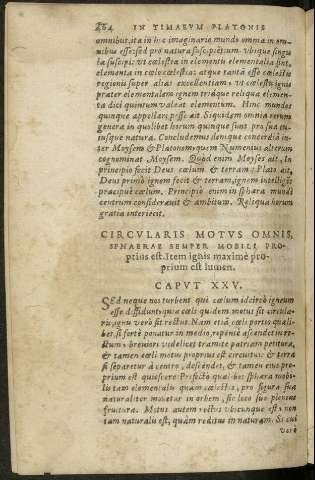 464 IN TIMAEVM PLATONIS
omnibus, ita in hac imaginaria mundi omnia in om-
nibus esse: sed pro natura suscipientium. ubique singu
la suscipi: ut cœlestia in elementis elementalia sint,
elementa in cœlo cœlestia: atque tantā esse cœlestis
regionis super alias excellentiam, ut cœlestis ignis
præter elementalem ignem triaque reliqua elemen-
ta dici quintum ualeat elementum. Hinc mundos
quinque appellari posse ait. Siquidem omnia rerum
genera in quolibet horum quinque sunt pro sua cu-
iusque natura. Concludemus denique concordiā in-
ter Moysem & Platonem, quem Numenius alterum
cognominat Moysem. Quod enim Moyses ait, In
principio fecit Deus cœlum & terram: Plato ait,
Deus primò ignem fecit & terram, ignem intelligīs
præcipuè cœlum. Principiò enim in sphæra mundi
centrum considerauit & ambitum. Reliqua horum
gratia interiecit.
CIRCVLARIS MOTVS OMNIS,
SPHAERAE SEMPER MOBILI PRO-
prius est. Item ignis maximè pro-
prium est lumen.
CAPVT XXV.
SEd neque nos turbent qui cœlum idcirco igneum
esse diffidunt, quia cœli quidem motus sit circula-
ris, ignis verò sit rectus. Nam etiā cœli portio quali-
bet, si fortè ponatur in medio, repentè ascendet in re-
ctum: breuiori videlicet tramite patriam petitura,
& tamen cœli motus proprius est circuitus: & terra
si separetur à centro, descendet, & tamen eius pro-
prium est quiescere. Profectò quælibet sphæra mobi-
lis tam elementalis quàm cœlestis, pro figura sua
naturaliter mouetur in orbem, sic loco suo plenius
fruitura. Motus autem rectus ubicunque est, non
tam naturalis est, quàm reditus in naturam. Si cui
verò